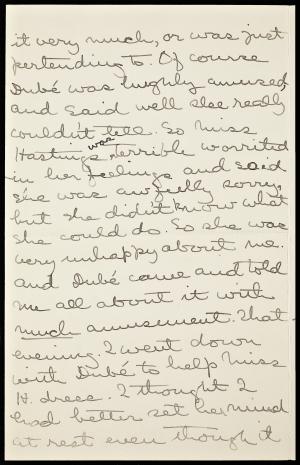 it very much, or was just
pertending to. Of course
Dubé was hughly amused,
and said well else really
couldn't tell. So Miss
Hastings was terrible worrited
in her feelings and said
she was awfully sorry,
but she didn't know what
she could do. So she was
very unhappy about me.
and Dubé came and told
me all about it with
much amusement. That
evening I went down
with Dubé to help Miss
H. dress. I thought I
had better set her mind
at rest even though it